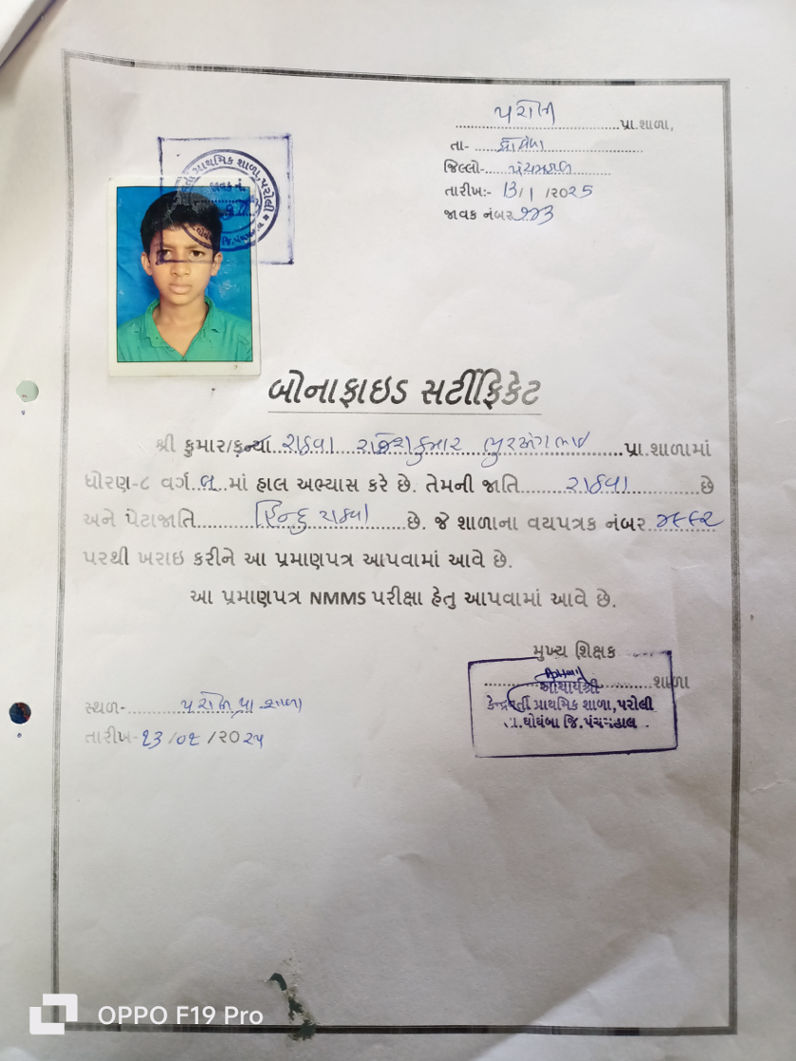 પરોલી પ્રા.શાળા,
તા- ઘોઘંબા
જિલ્લો- પંચમહાલ
તારીખ:- 13/1/2025
જાવક નંબર ૧૧૩
પ્રાથમિક શાળા, પરોલી
જાવક નં.
બોનાફાઇડ સર્ટીફિકેટ
શ્રી કુમાર/કન્યા રાઠવા રાજેશકુમાર પ્રા.શાળામાં
ધોરણ-૮ વર્ગ માં હાલ અભ્યાસ કરે છે. તેમની જાતિ રાઠવા છે
અને પેટાજાતિ હિન્દુ રાઠવા છે. જે શાળાના વયપત્રક નંબર
પરથી ખરાઇ કરીને આ પ્રમાણપત્ર આપવામાં આવે છે.
આ પ્રમાણપત્ર NMMS પરીક્ષા હેતુ આપવામાં આવે છે.
મુખ્ય શિક્ષક
આચાર્યશ્રી શાળા
કેન્દ્રવર્તી પ્રાથમિક શાળા, પરોલી
તા.ઘોઘંબા જિ.પંચમહાલ
સ્થળ- પરોલી પ્રા શાળા
તારીખ-૧૩/૦૧/૨૦૨૫
OPPO F19 Pro